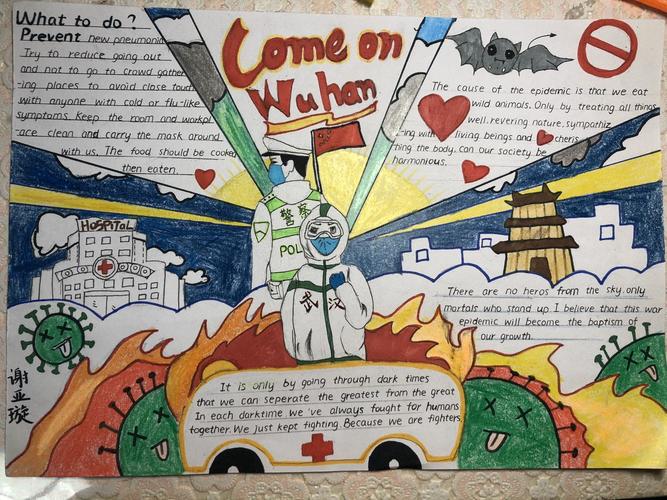 What to do?
Prevent new pneumonia
Try to reduce going out
and not to go to crowd gather
-ing places to avoid close touch
with anyone with cold or flu-like
symptoms Keep the room and workpl
-ace clean and carry the mask around
with us. The food should be cooked
then eaten.
Come on
Wuhan
The cause of the epidemic is that we eat
wild animals. Only by treating all things
well. revering nature, sympathiz
-ing with living beings and cheris
-hing the body. can our society be
harmonious.
HOSPITAL
警察
POL
武汉
There are no heros from the sky. only
mortals who stand up. I believe that this war
epidemic will become the baptism of
our growth.
谢亚璇
It is only by going through dark times
that we can seperate the greatest from the great
In each darktime we've always fought for humans
together. We just kept fighting. Because we are fighters.